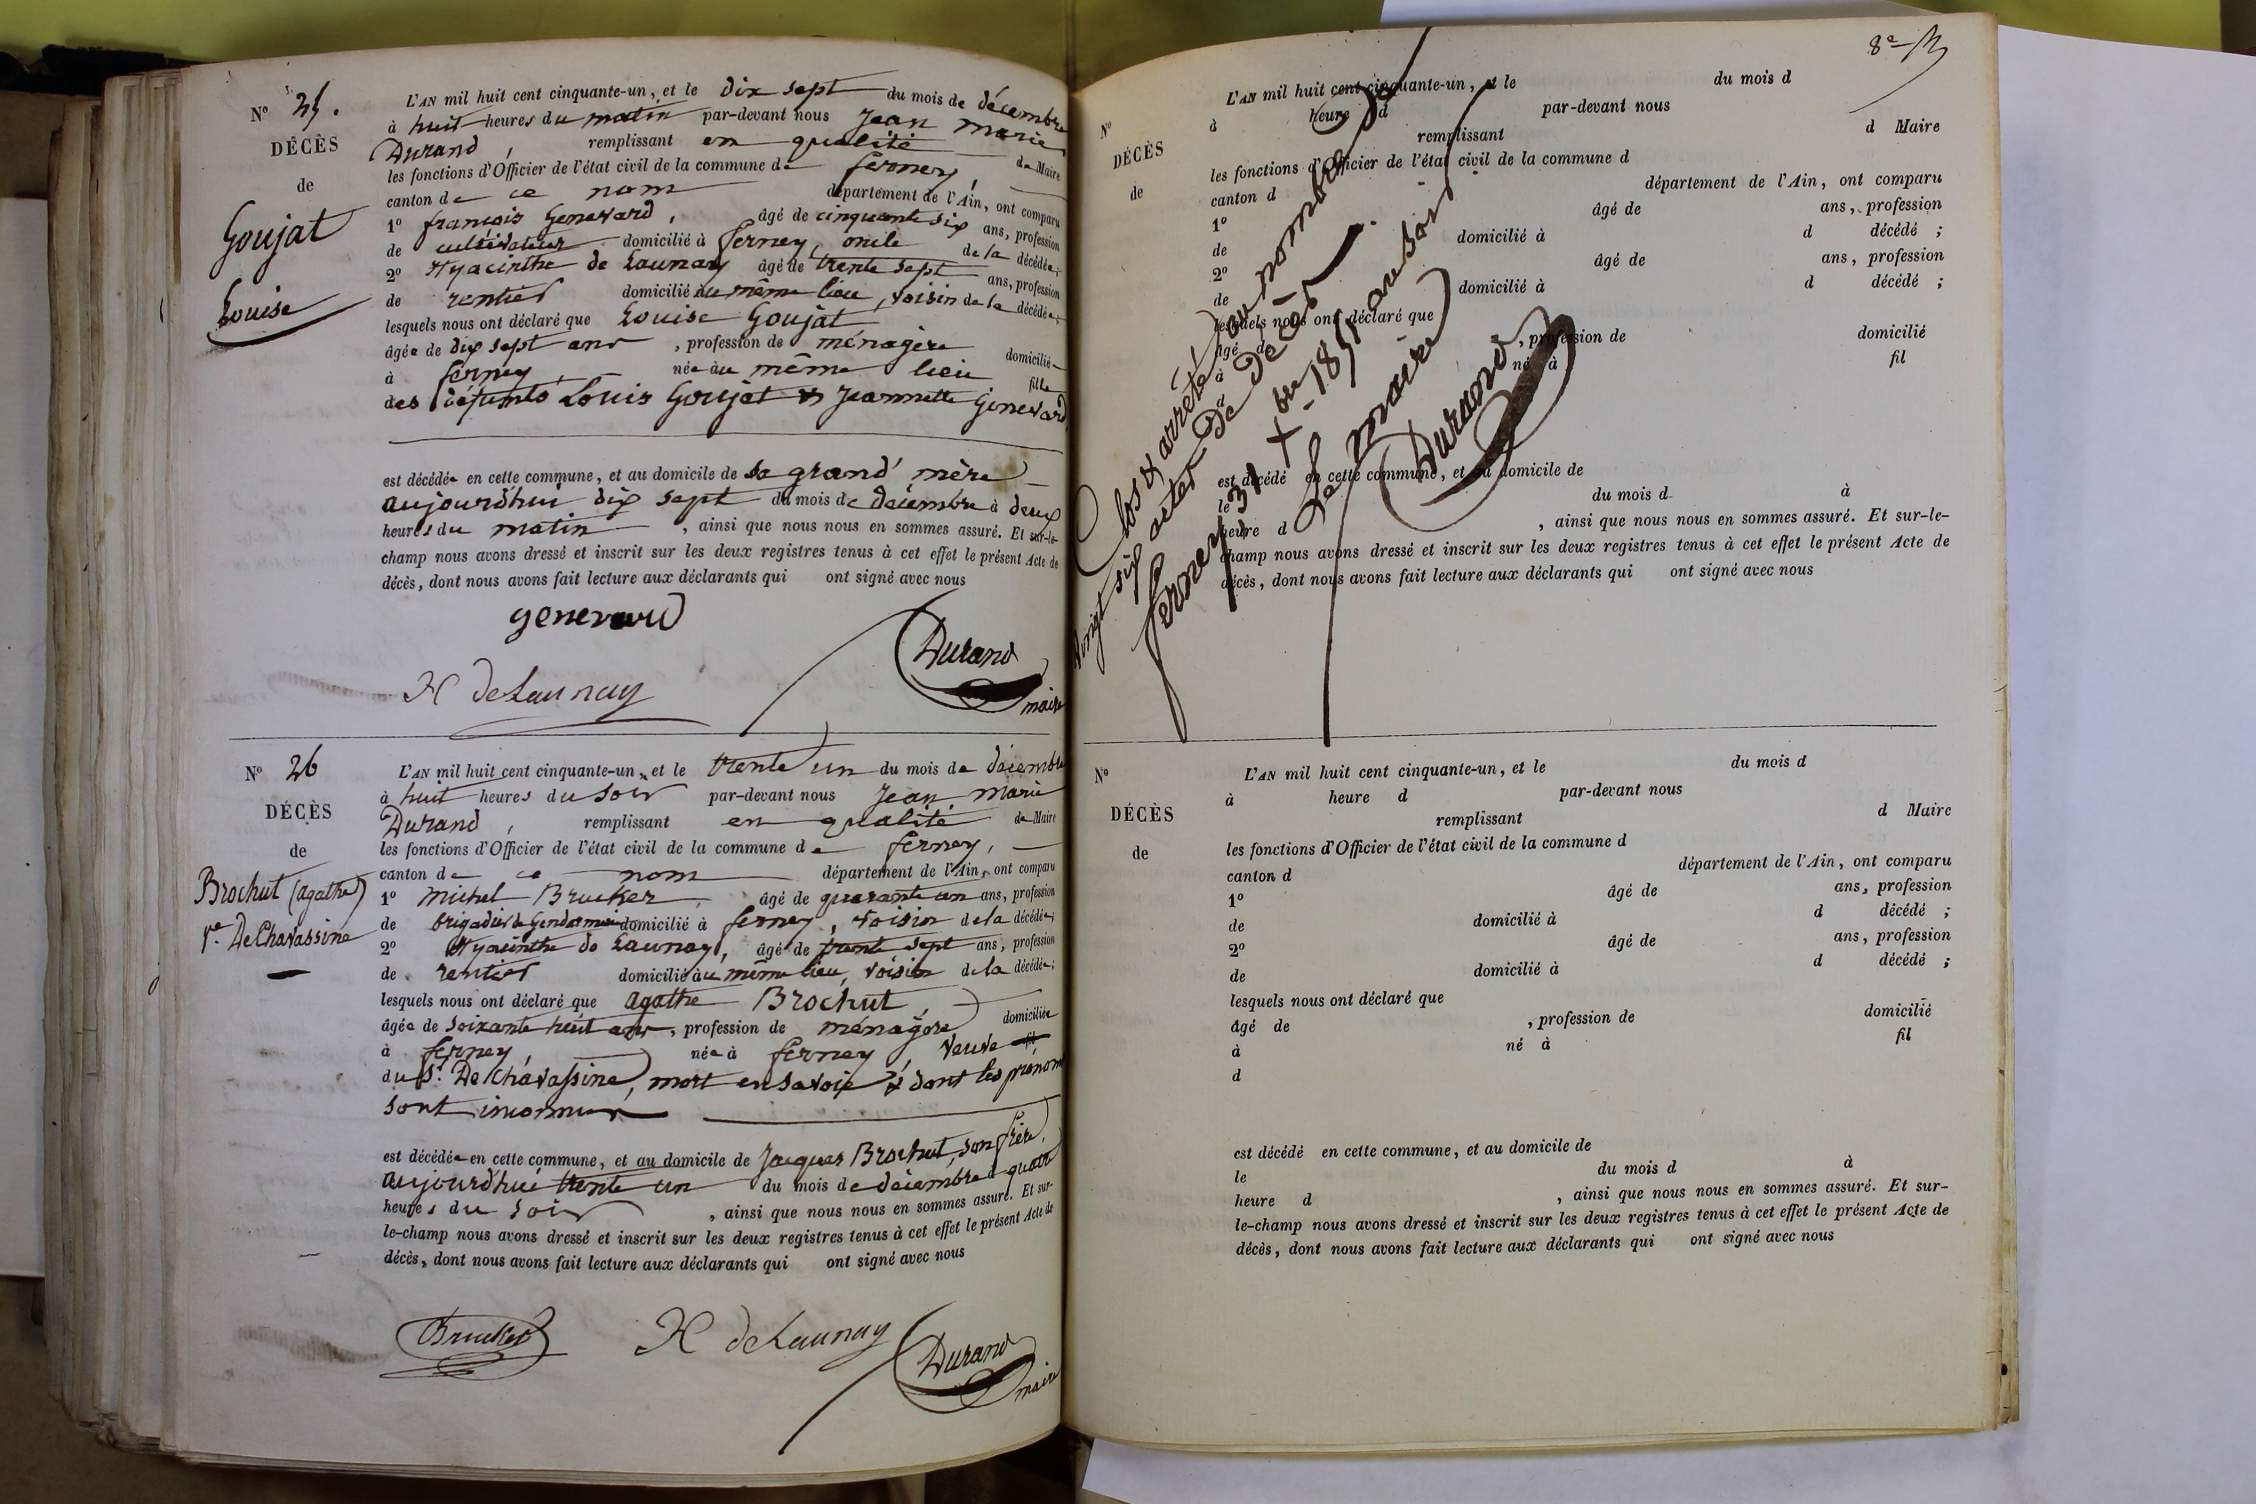 N° 25.
DÉCÈS
de
Goujat
Louise
L'AN mil huit cent cinquante-un, et le dix sept du mois de décembre
à huit heures du matin par-devant nous Jean marie
Durand, remplissant en qualité de Maire
les fonctions d'Officier de l'état civil de la commune de ferney,
canton de ce nom département de l'Ain, ont comparu
1° françois Genevard, âgé de cinquante six ans, profession
de cultivateur domicilié à ferney, oncle de la décédée;
2° Hyacinthe de Launay âgé de trente sept ans, profession
de rentier domicilié au même lieu, voisin de la décédée;
lesquels nous ont déclaré que Louise Goujat
âgée de dix sept ans, profession de ménagère domiciliée
à ferney, née au même lieu fille
des défunts Louis Goujat & Jeannette Genevard
est décédée en cette commune, et au domicile de sa grand' mère
aujourd'hui dix sept du mois de décembre à deux
heures du matin, ainsi que nous nous en sommes assuré. Et sur-le-
champ nous avons dressé et inscrit sur les deux registres tenus à cet effet le présent Acte de
décès, dont nous avons fait lecture aux déclarants qui ont signé avec nous
genevard
H de Launay
Durand
maire
N° 26
DÉCÈS
de
Brochut (agathe)
Ve. De Chavassine
L'AN mil huit cent cinquante-un, et le trente un du mois de décembre
à huit heures du soir par-devant nous Jean marie
Durand, remplissant en qualité de Maire
les fonctions d'Officier de l'état civil de la commune de ferney,
canton de ce nom département de l'Ain, ont comparu
1° michel Brucker, âgé de quarante un ans, profession
de brigadier de Gendarmerie domicilié à ferney, voisin de la décédée;
2° Hyacinthe de Launay, âgé de trente sept ans, profession
de rentier domicilié au même lieu, voisin de la décédée;
lesquels nous ont déclaré que agathe Brochut,
âgée de soixante huit ans, profession de ménagère domiciliée
à ferney, née à ferney, veuve fil
du Sr. De Chavassine, mort en savoie & dont les prénoms
sont inconnus
est décédée en cette commune, et au domicile de Jacques Brochut, son frère,
aujourd'hui trente un du mois de décembre à quatre
heures du soir, ainsi que nous nous en sommes assuré. Et sur-
le-champ nous avons dressé et inscrit sur les deux registres tenus à cet effet le présent Acte de
décès, dont nous avons fait lecture aux déclarants qui ont signé avec nous
Brucker
H de Launay
Durand
maire
8e
N°
DÉCÈS
de
L'AN mil huit cent cinquante-un, et le du mois d
à heure d par-devant nous
remplissant d Maire
les fonctions d'Officier de l'état civil de la commune d
canton d département de l'Ain, ont comparu
1° âgé de ans, profession
de domicilié à d décédé ;
2° âgé de ans, profession
de domicilié à d décédé ;
lesquels nous ont déclaré que
âgé de , profession de domicilié
à né à fil
d
est décédé en cette commune, et au domicile de
le du mois d à
heure d , ainsi que nous nous en sommes assuré. Et sur-le-
champ nous avons dressé et inscrit sur les deux registres tenus à cet effet le présent Acte de
décès, dont nous avons fait lecture aux déclarants qui ont signé avec nous
Clos & arrêté au nombre de
vingt six actes de décès.
ferney 31 Xbre 1851 au soir
Le maire
Durand
N°
DÉCÈS
de
L'AN mil huit cent cinquante-un, et le du mois d
à heure d par-devant nous
remplissant d Maire
les fonctions d'Officier de l'état civil de la commune d
canton d département de l'Ain, ont comparu
1° âgé de ans, profession
de domicilié à d décédé ;
2° âgé de ans, profession
de domicilié à d décédé ;
lesquels nous ont déclaré que
âgé de , profession de domicilié
à né à fil
d
est décédé en cette commune, et au domicile de
le du mois d à
heure d , ainsi que nous nous en sommes assuré. Et sur-
le-champ nous avons dressé et inscrit sur les deux registres tenus à cet effet le présent Acte de
décès, dont nous avons fait lecture aux déclarants qui ont signé avec nous